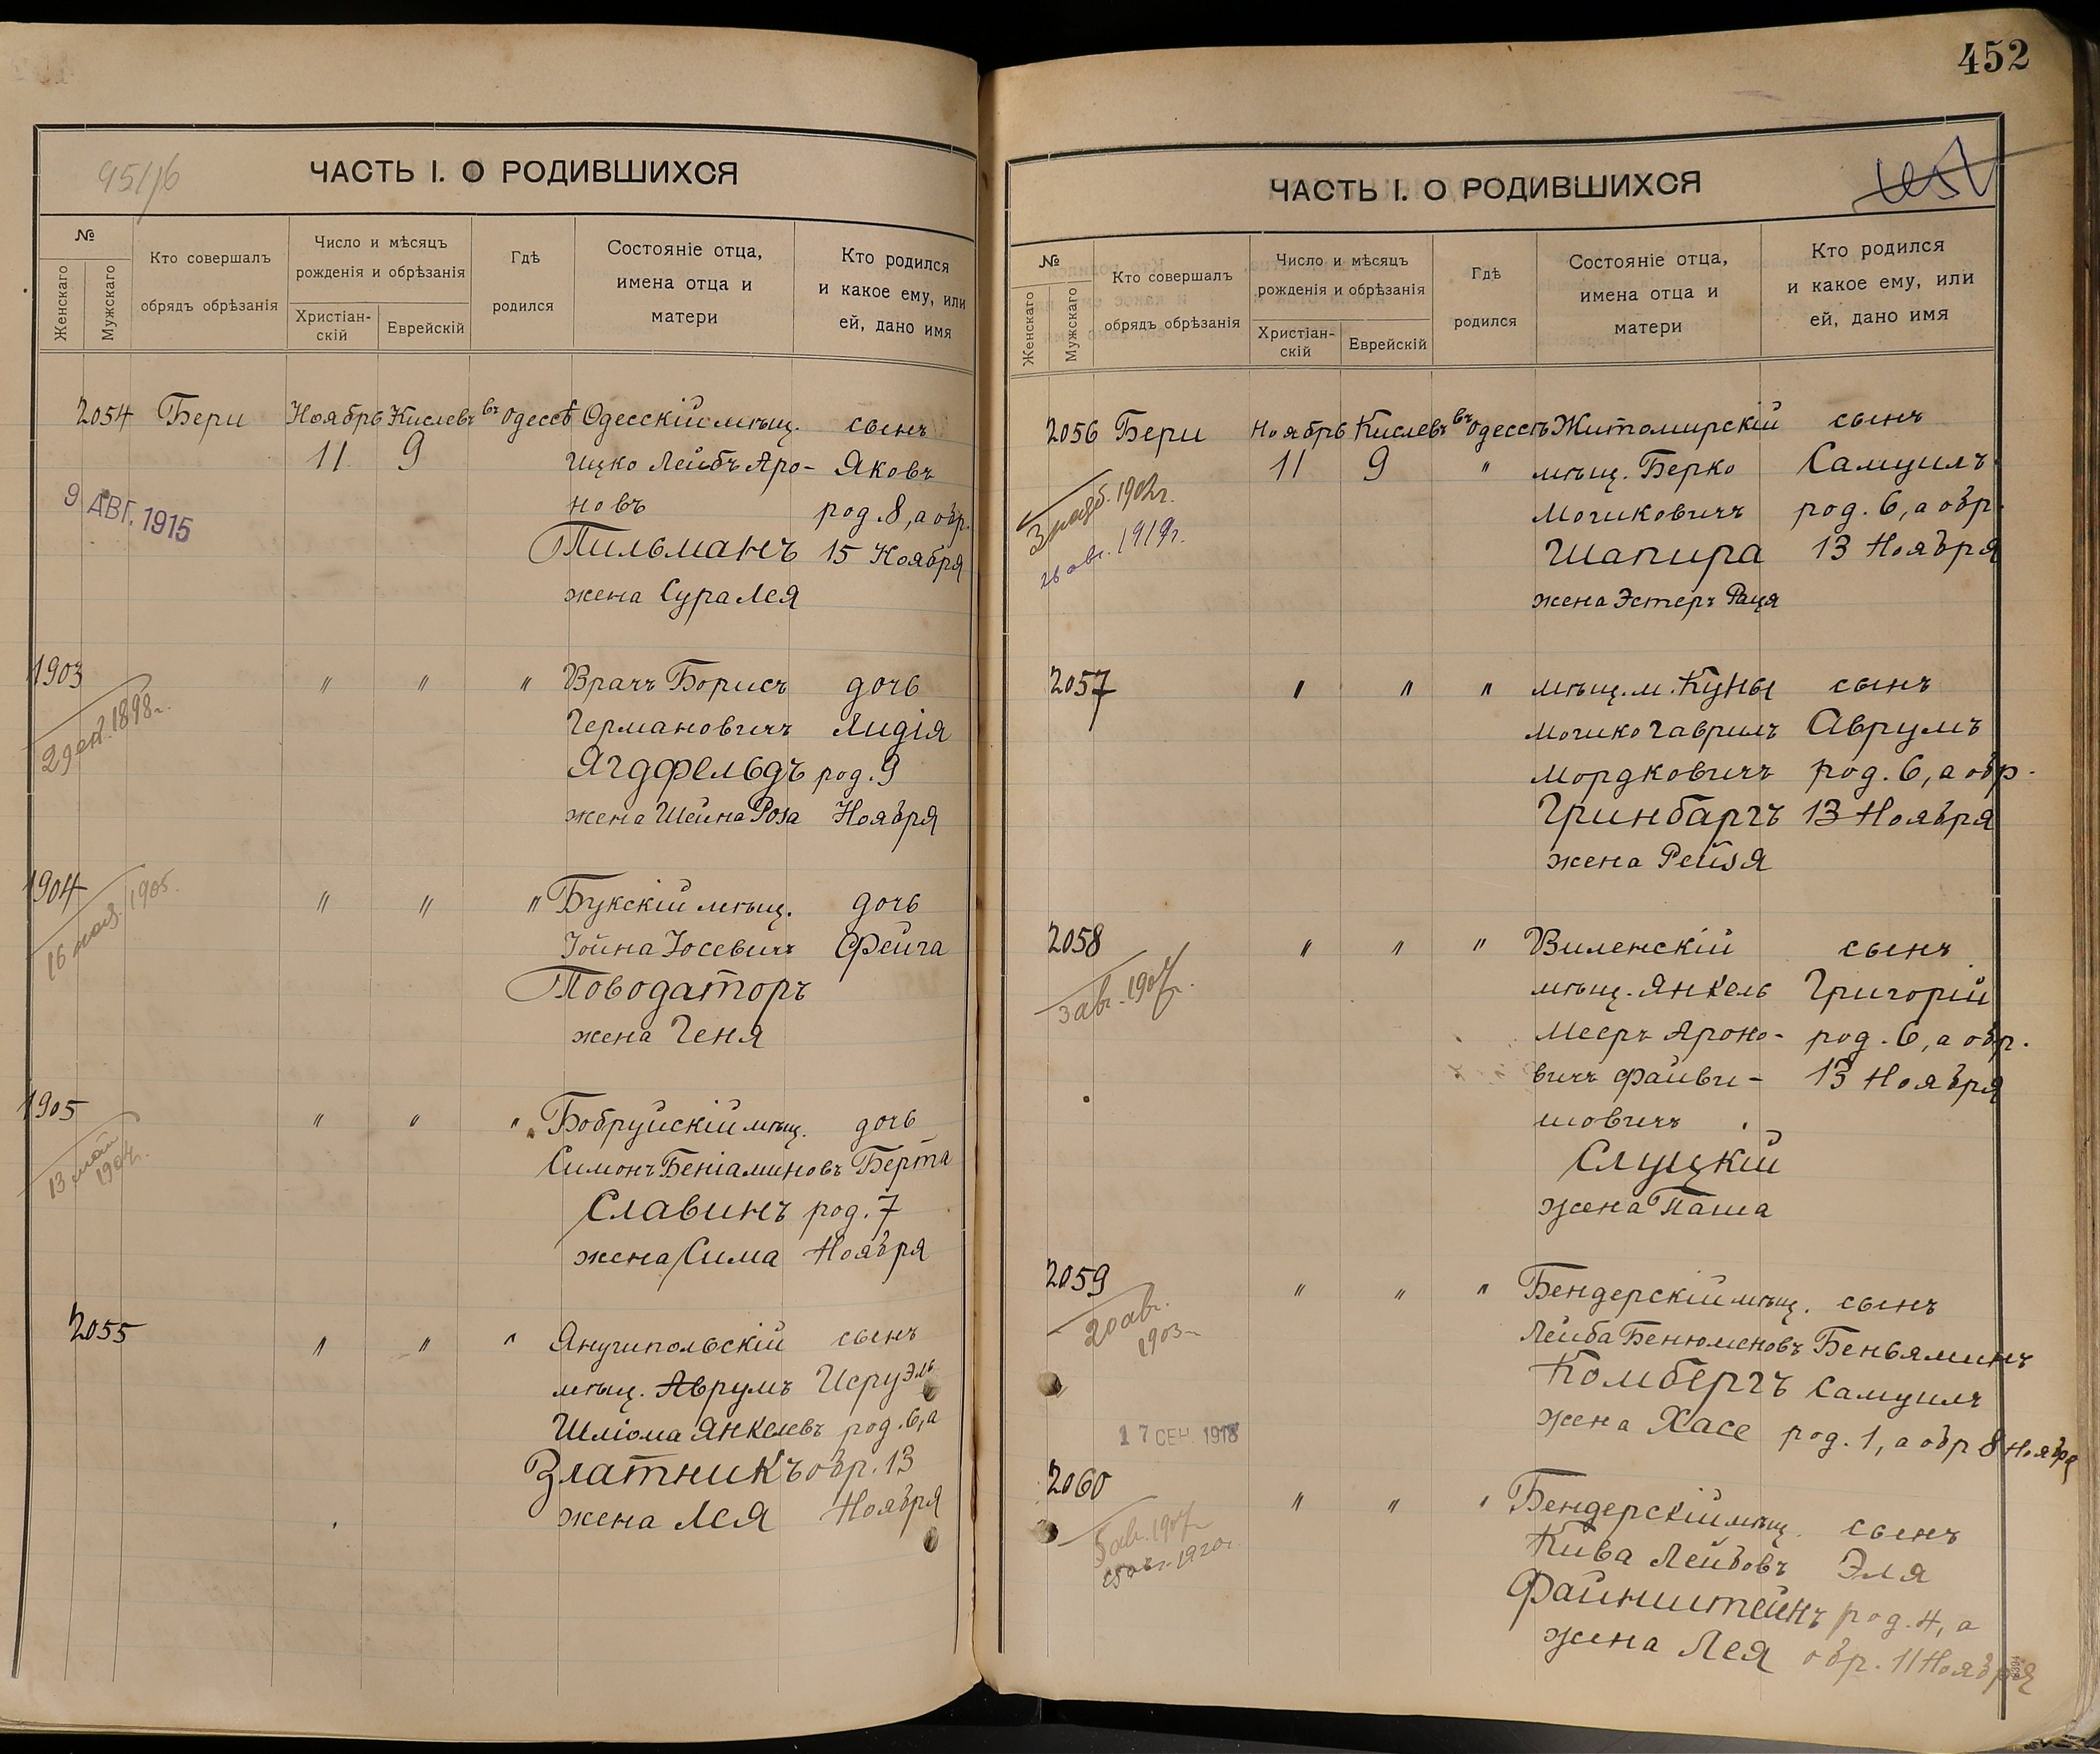 452
95/16
ЧАСТЬ I. О РОДИВШИХСЯ
№
Женскаго
Мужскаго
Кто совершалъ
обрядъ обрѣзанія
Число и мѣсяцъ
рожденія и обрѣзанія
Христіан-
скій
Еврейскій
Гдѣ
родился
Состояніе отца,
имена отца и
матери
Кто родился
и какое ему, или
ей, дано имя
2054 Бери Ноябрь Кислевъ въ Одессѣ Одесскій мѣщ. сынъ
11 9 Ицко Лейбъ Аро- Яковъ
новъ род. 8, а обр.
9 АВГ. 1915
Тильманъ 15 Ноября
жена Сура Лея
1903 " " " Врачъ Борисъ дочь
2 ден. 1898 г.
Германовичъ Лидія
Ягдфельдъ род. 9
жена Шейна Роза Ноября
1904 " " " Букскій мѣщ. дочь
1905
Іойна Іосевичъ Фейга
Товодаторъ
жена Геня
1905 " " " Бобруйскій мѣщ. дочь
13 мая
1904 г.
Симонъ Беніаминовъ Берта
Славинъ род. 7
жена Сима Ноября
2055 " " " Янушпольскій сынъ
мѣщ. Аврумъ Исруэль
Шліома Янкелевъ род. 6, а
Златникъ обр. 13
жена Лея Ноября
ЧАСТЬ I. О РОДИВШИХСЯ
№
Женскаго
Мужскаго
Кто совершалъ
обрядъ обрѣзанія
Число и мѣсяцъ
рожденія и обрѣзанія
Христіан-
скій
Еврейскій
Гдѣ
родился
Состояніе отца,
имена отца и
матери
Кто родился
и какое ему, или
ей, дано имя
2056 Бери Ноябрь Кислевъ въ Одессѣ Житомирскій сынъ
11 9 " мѣщ. Берко Самуилъ
Мошковичъ род. 6, а обр.
1902 г.
26 авг. 1919 г.
Шапира 13 Ноября
жена Эстеръ Рася
2057 " " " мѣщ. м. Куны сынъ
Мошко Гаврилъ Аврумъ
Мордковичъ род. 6, а обр.
Гринбаргъ 13 Ноября
жена Рейзя
2058 " " " Виленскій сынъ
3 авг. 1907 г.
мѣщ. Янкель Григорій
Мееръ Ароно- род. 6, а обр.
вичъ Файви- 13 Ноября
шовичъ
Слуцкій
жена Паша
2059 " " " Бендерскій мѣщ. сынъ
20 авг.
1903
Лейба Бенюменовъ Беньяминъ
Комбергъ Самуилъ
жена Хасе род. 1, а обр 8 Ноября
17 СЕН. 1918
2060 " " " Бендерскій мѣщ. сынъ
5 авг. 1907
1920 г.
Кива Лейбовъ Эля
Файнштейнъ род. 4, а
жена Лея обр. 11 Ноября